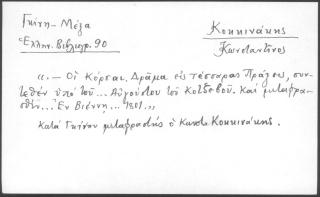 Γκίνη - Μέξα
Ἑλλην. Βιβλιογρ. 90
Κοκκινάκης
Κωνσταντῖνος
«.- Οἱ Κόρσαι. Δρᾶμα εἰς τέσσαρας Πράξεις, συν-
τεθὲν ὑπὸ τοῦ ... Αὐγούστου τοῦ Κοτζεβοῦ. Καὶ μεταφρα-
σθὲν... Ἐν Βιέννῃ ... 1801.»
Κατὰ Γκίνην μεταφραστὴς ὁ Κωνστ. Κοκκινάκης.